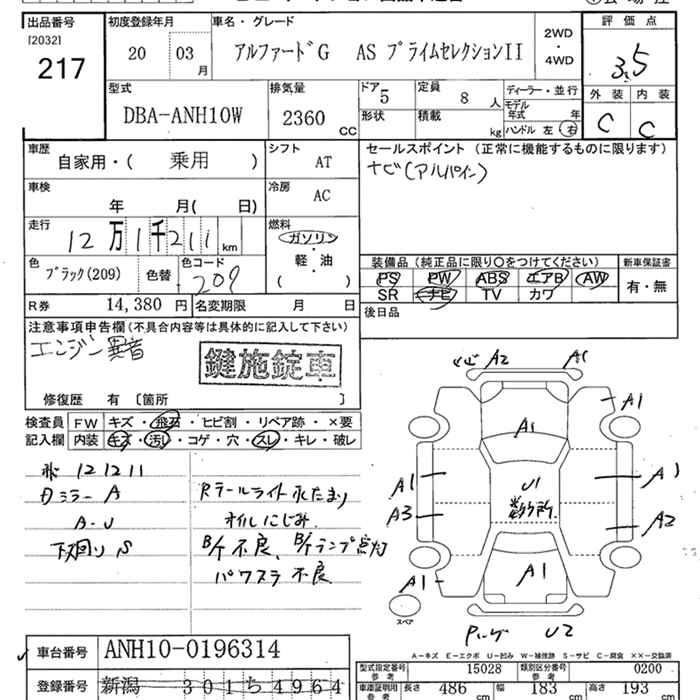 出品番号 初度登録年月 車名・グレード 評価点
[2032]
217
20 03月 アルファードG AS プライムセレクションII 2WD・4WD 3.5
型式 排気量 ドア 5 定員 8人 ディーラー・並行 外装 内装
DBA-ANH10W 2360CC 形状 積載 kg モデル年式 年 C C
ハンドル 左 右
車歴 シフト セールスポイント (正常に機能するものに限ります)
自家用・( 乗用 ) AT ナビ(アルパイン)
車検 冷房
年 月( 日) AC
走行 燃料
12万1千211km ガソリン・軽・油
( )
装備品(純正品に限り○をつけてください) 新車保証書
色 色コード
ブラック(209) 色替 209
PS PW ABS エアB AW 有・無
SR ナビ TV カワ
R券 14,380円 名変期限 月 日 後日品
注意事項申告欄(不具合内容等は具体的に記入して下さい)
エンジン異音
鍵施錠車
修復歴 有 〔箇所 〕
検査員 FW キズ・飛石・ヒビ割・リペア跡・×要
記入欄 内装 キズ・汚レ・コゲ・穴・スレ・キレ・破レ
121211
ミラー A Rテールライト水たまり
A・U オイルにじみ
下廻り S B/K不良、B/Kランプ点灯
パワステ不良
A2 A1
A1
A1
A1 U1 A1
A3 A2
A1 A1
スペア
U2
A-キズ E-エクボ U-凹み W-補修跡 S-サビ C-腐食 ××-交換済
車台番号 ANH10-0196314
型式指定番号 参考 15028 類別区分番号 参考 0200
登録番号 新潟 301ち4964
車検証明用 参考 長さ 486cm 幅 183cm 高さ 193cm